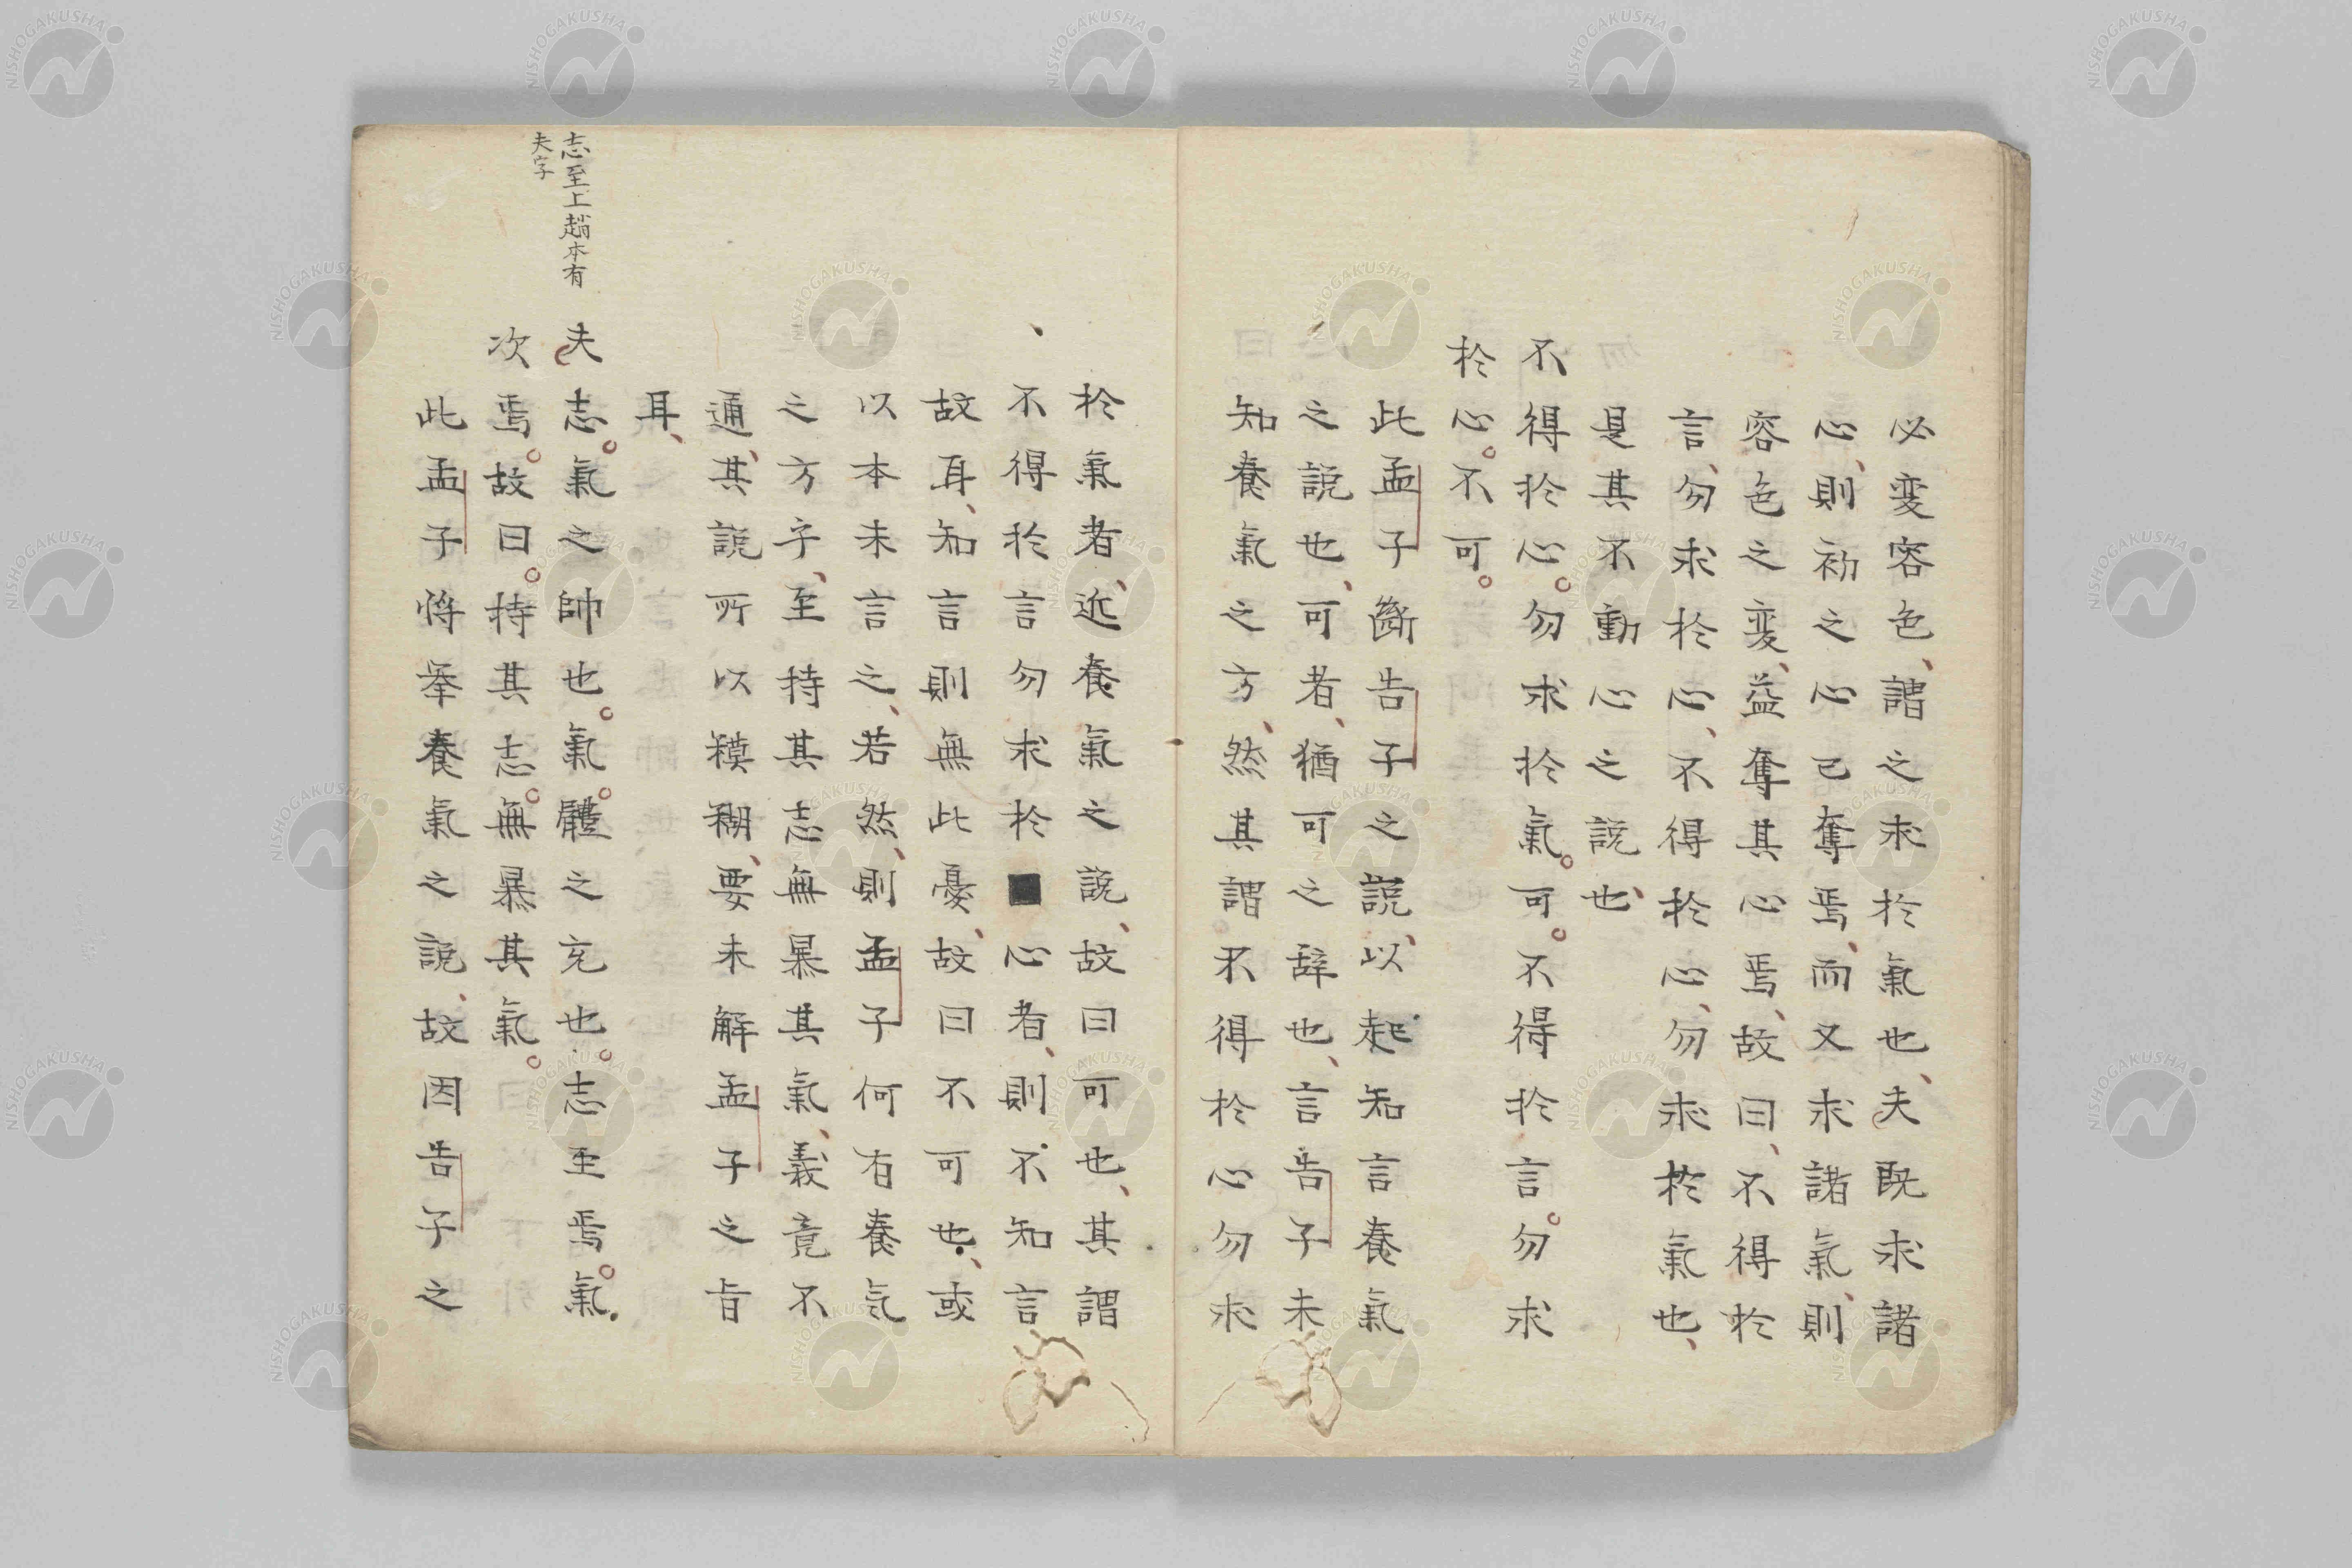 必変容色、謂之求於氣也、夫既求諸
心、則初之心已奪焉、而又求諸氣、則
容色之変、益奪其心焉、故曰、不得於
言、勿求於心、不得於心、勿求於氣也、
是其不動心之説也、
不得於心。勿求於氣。可。不得於言。勿求
於心。不可。
此孟子斷告子之説、以起知言養氣
之説也、可者、猶可之辞也、言告子未
知養氣之方、然其謂不得於心勿求
於氣者、近養氣之説、故曰可也、其謂
不得於言勿求於■心者、則不知言
故耳、知言則無此憂、故曰不可也、或
以本末言之、若然、則孟子何有養気
之方乎、至持其志無暴其氣、義竟不
通、其説所以糢糊、要未解孟子之旨
耳、
志至上趙本有
夫字
夫志。氣之帥也。氣。體之充也。志至焉。氣
次焉。故曰。持其志。無暴其氣。
此孟子将挙養氣之説、故因告子之
NISHOGAKUSHA